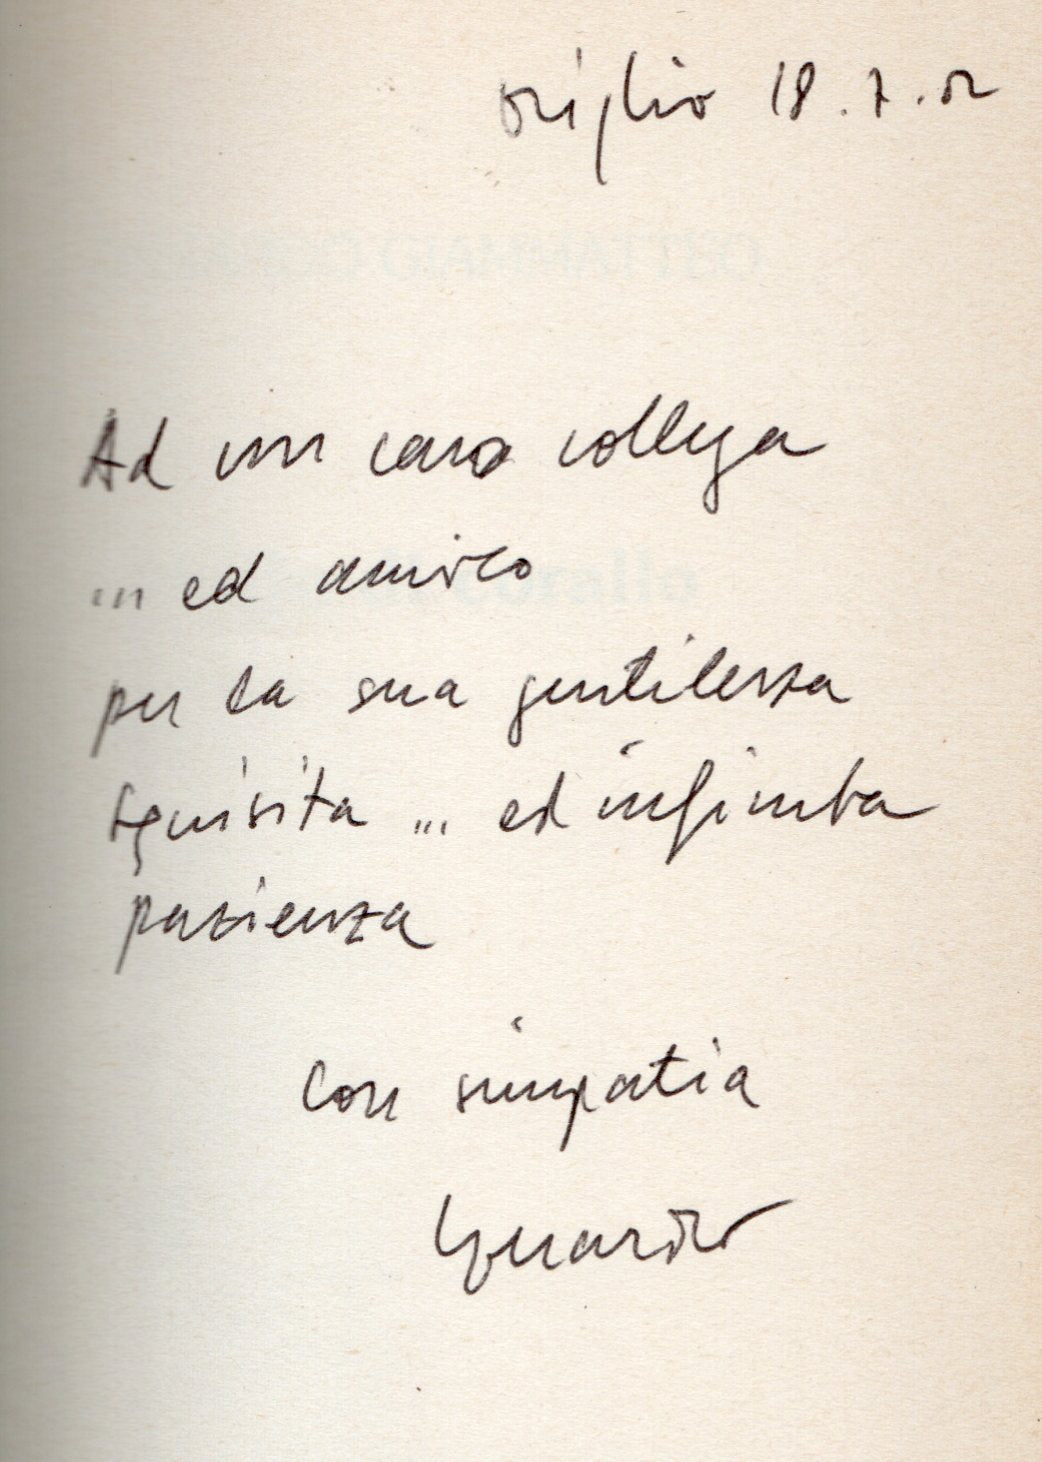 Origlio 18.7.02
GIAMMATTEO
Ad un caro collega
... ed amico
corallo
per la sua gentilezza
squisita ... ed infinita
pazienza
Con simpatia